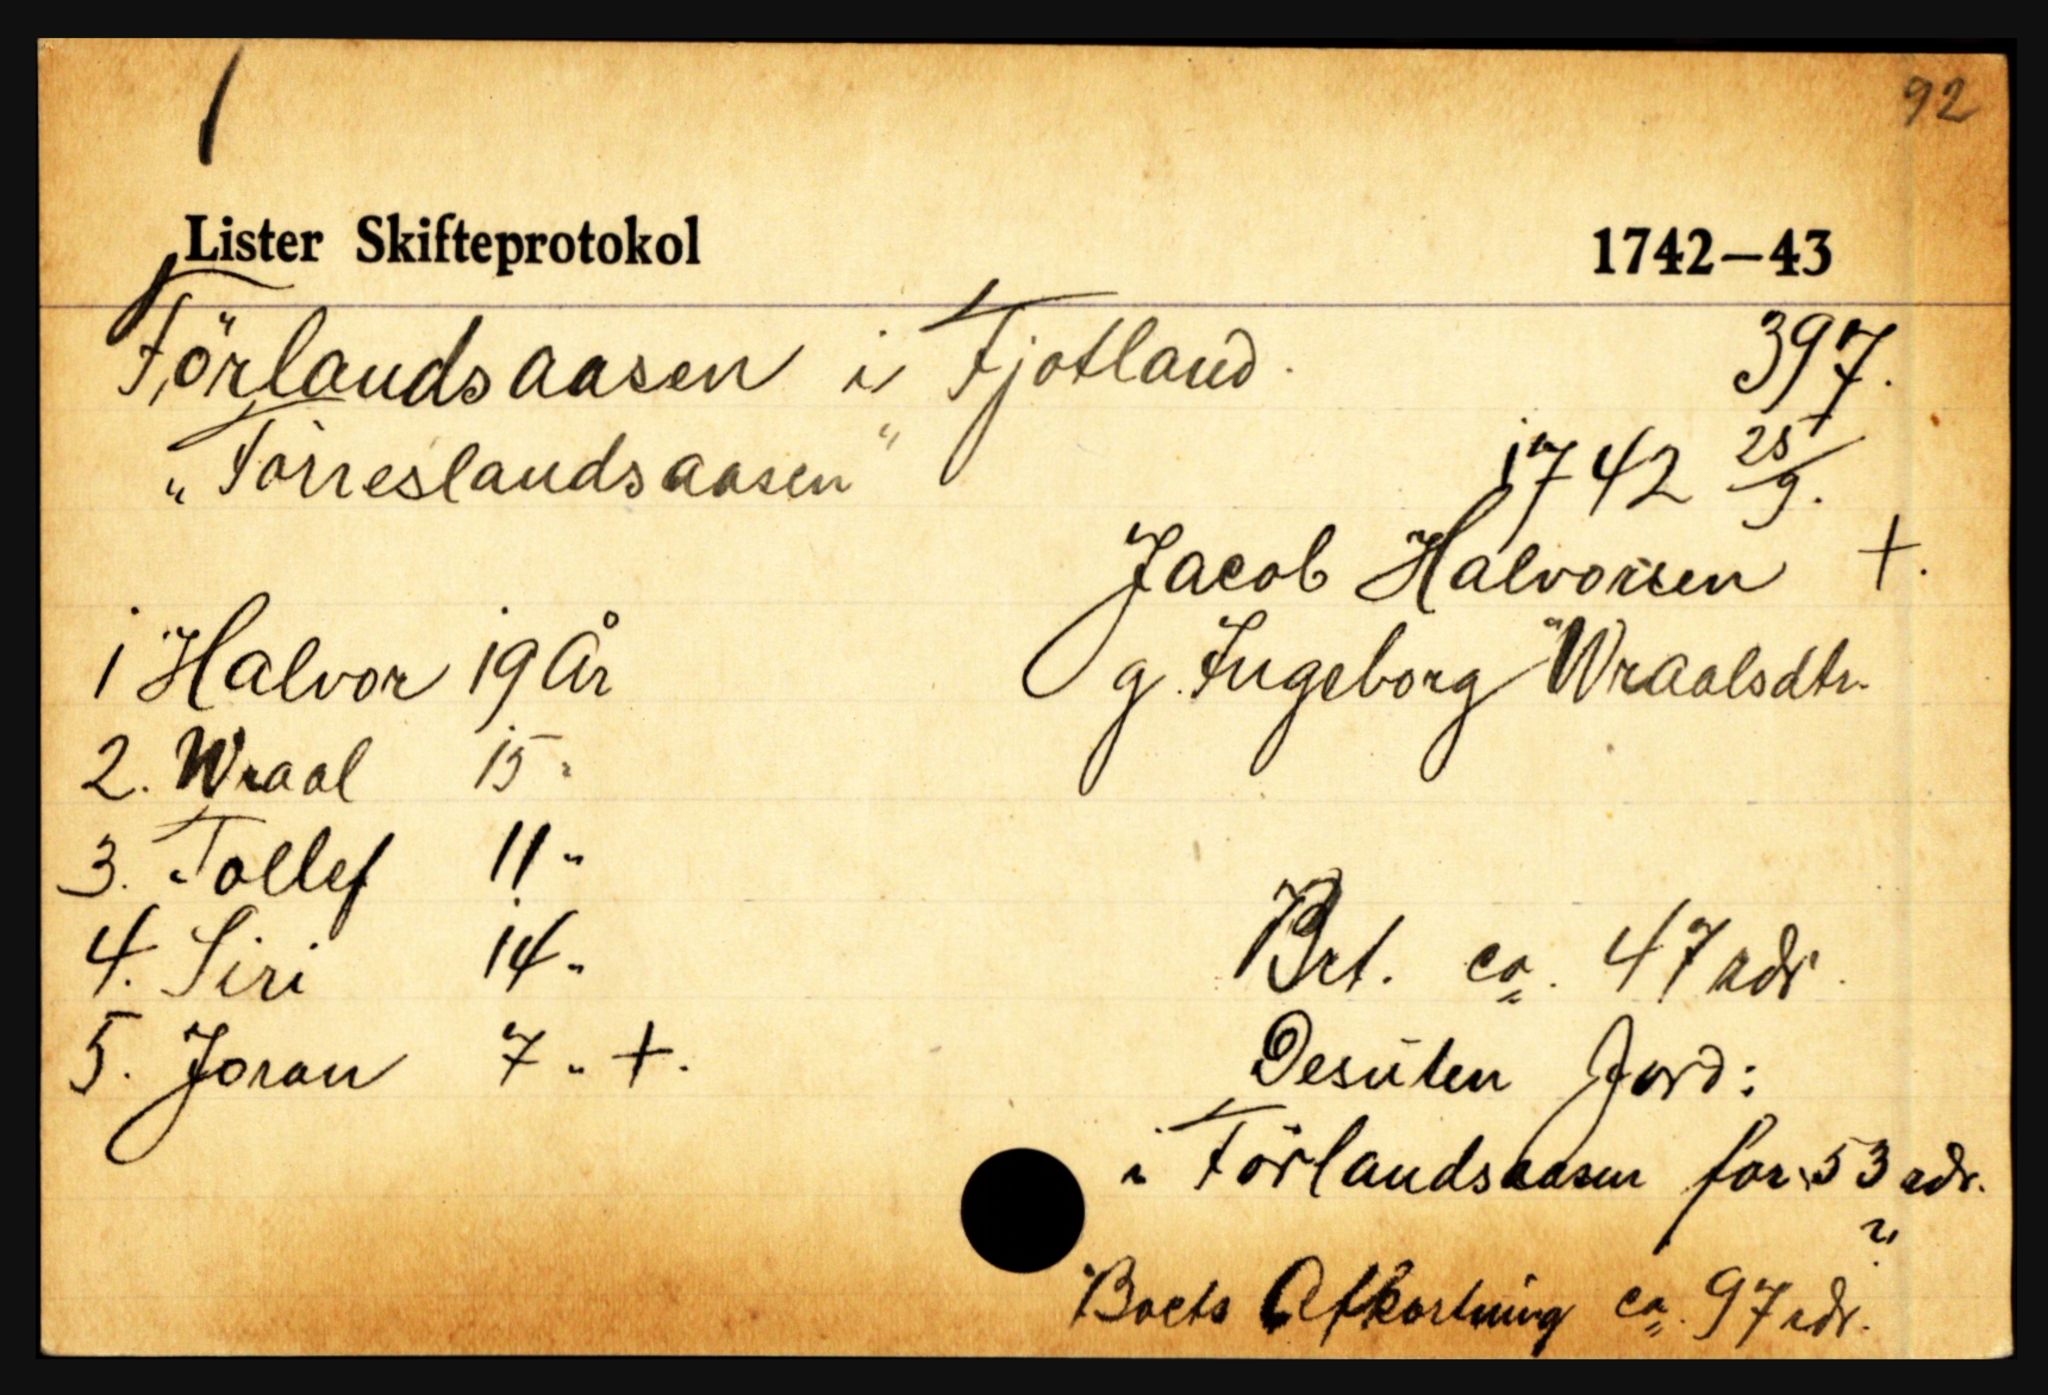 92
Lister Skifteprotokol 1742–43
Förlandsaasen i Fjotland. 397.
"Förreslandsaasen" 1742 25/9.
Jacob Halvorsen +.
g. Ingeborg Wraalsdtr.
1 Halvor 19 År
2. Wraal 15 "
3. Tollef 11 "
4. Siri 14 "
5. Joran 7 " +.
Brt. ca. 47 rdr.
Desuten Jord:
i Förlandsaasen for 53 rdr.
Boets Afkortning ca. 97 rdr.